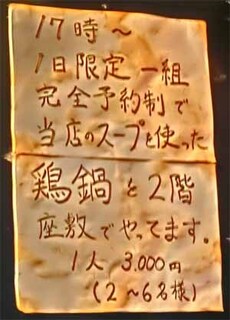 17時～
1日限定一組
完全予約制で
当店のスープを使った
鶏鍋を2階
座敷でやってます。
1人 3.000円
(2～6名様)